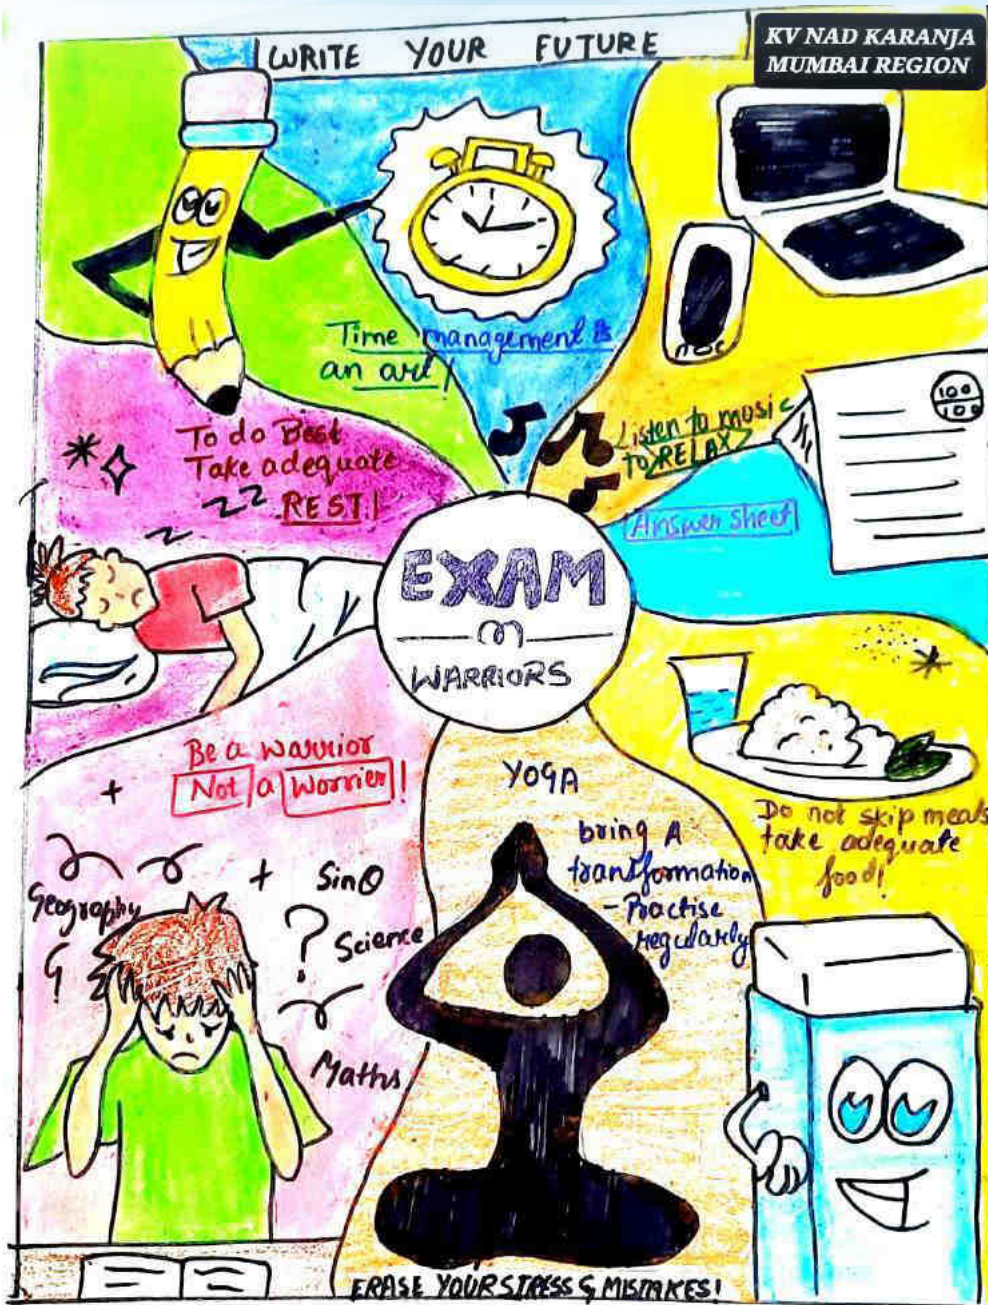 WRITE YOUR FUTURE
KV NAD KARANJA
MUMBAI REGION
Time management is
an art!
To do Best
Take adequate
zz REST!
z
Listen to music
to RELAX
100
100
Answer sheet
EXAM
WARRIORS
Be a warrior
Not a Worrier!
YOGA
bring A
transformation
- Practise
regularly
Do not skip meals
take adequate
food!
+
+
Geography
Sinθ
?
Science
Maths
ERASE YOUR STRESS & MISTAKES!